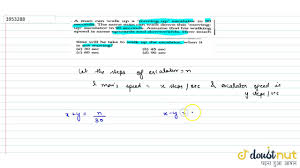 3953288
A man can walk up a 'moving up' escalator in 30
seconds. The same man can walk down this 'moving
up' escalator in 90 seconds. Assume that his walking
speed is same upwards and downwards. How much
time will he take to walk up the escalator, when it
is not moving?
(a) 30 sec (b) 45 sec
(c) 60 sec (d) 90 sec
Let the steps of escalator = n
& man's speed = x steps/sec & escalator speed is
y steps/sec
x+y = n/30 x-y =
doubtnut